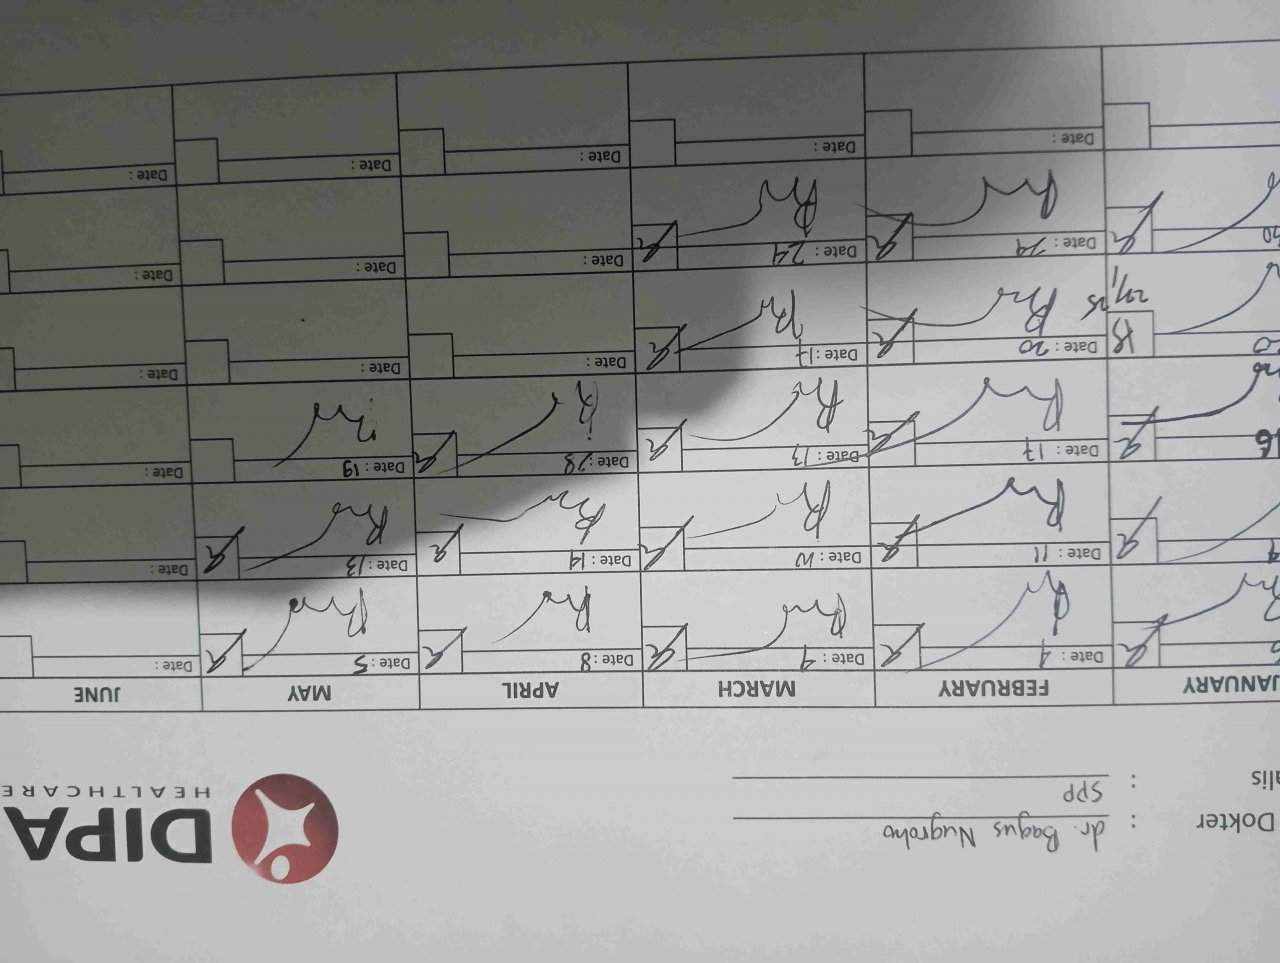 DIPA
HEALTHCARE
Dokter : dr. Bagus Nugroho
alis : SPP
ANUARY FEBRUARY MARCH APRIL MAY JUNE
Date : 4 Date : 4 Date : 8 Date : 5 Date :
Date : 11 Date : 10 Date : 14 Date : 13 Date :
Date : 17 Date : 13 Date : 28 Date : 19 Date :
Date : 20 Date : 17 Date : Date : Date :
Date : 24 Date : 24 Date : Date : Date :
Date : Date : Date : Date : Date :